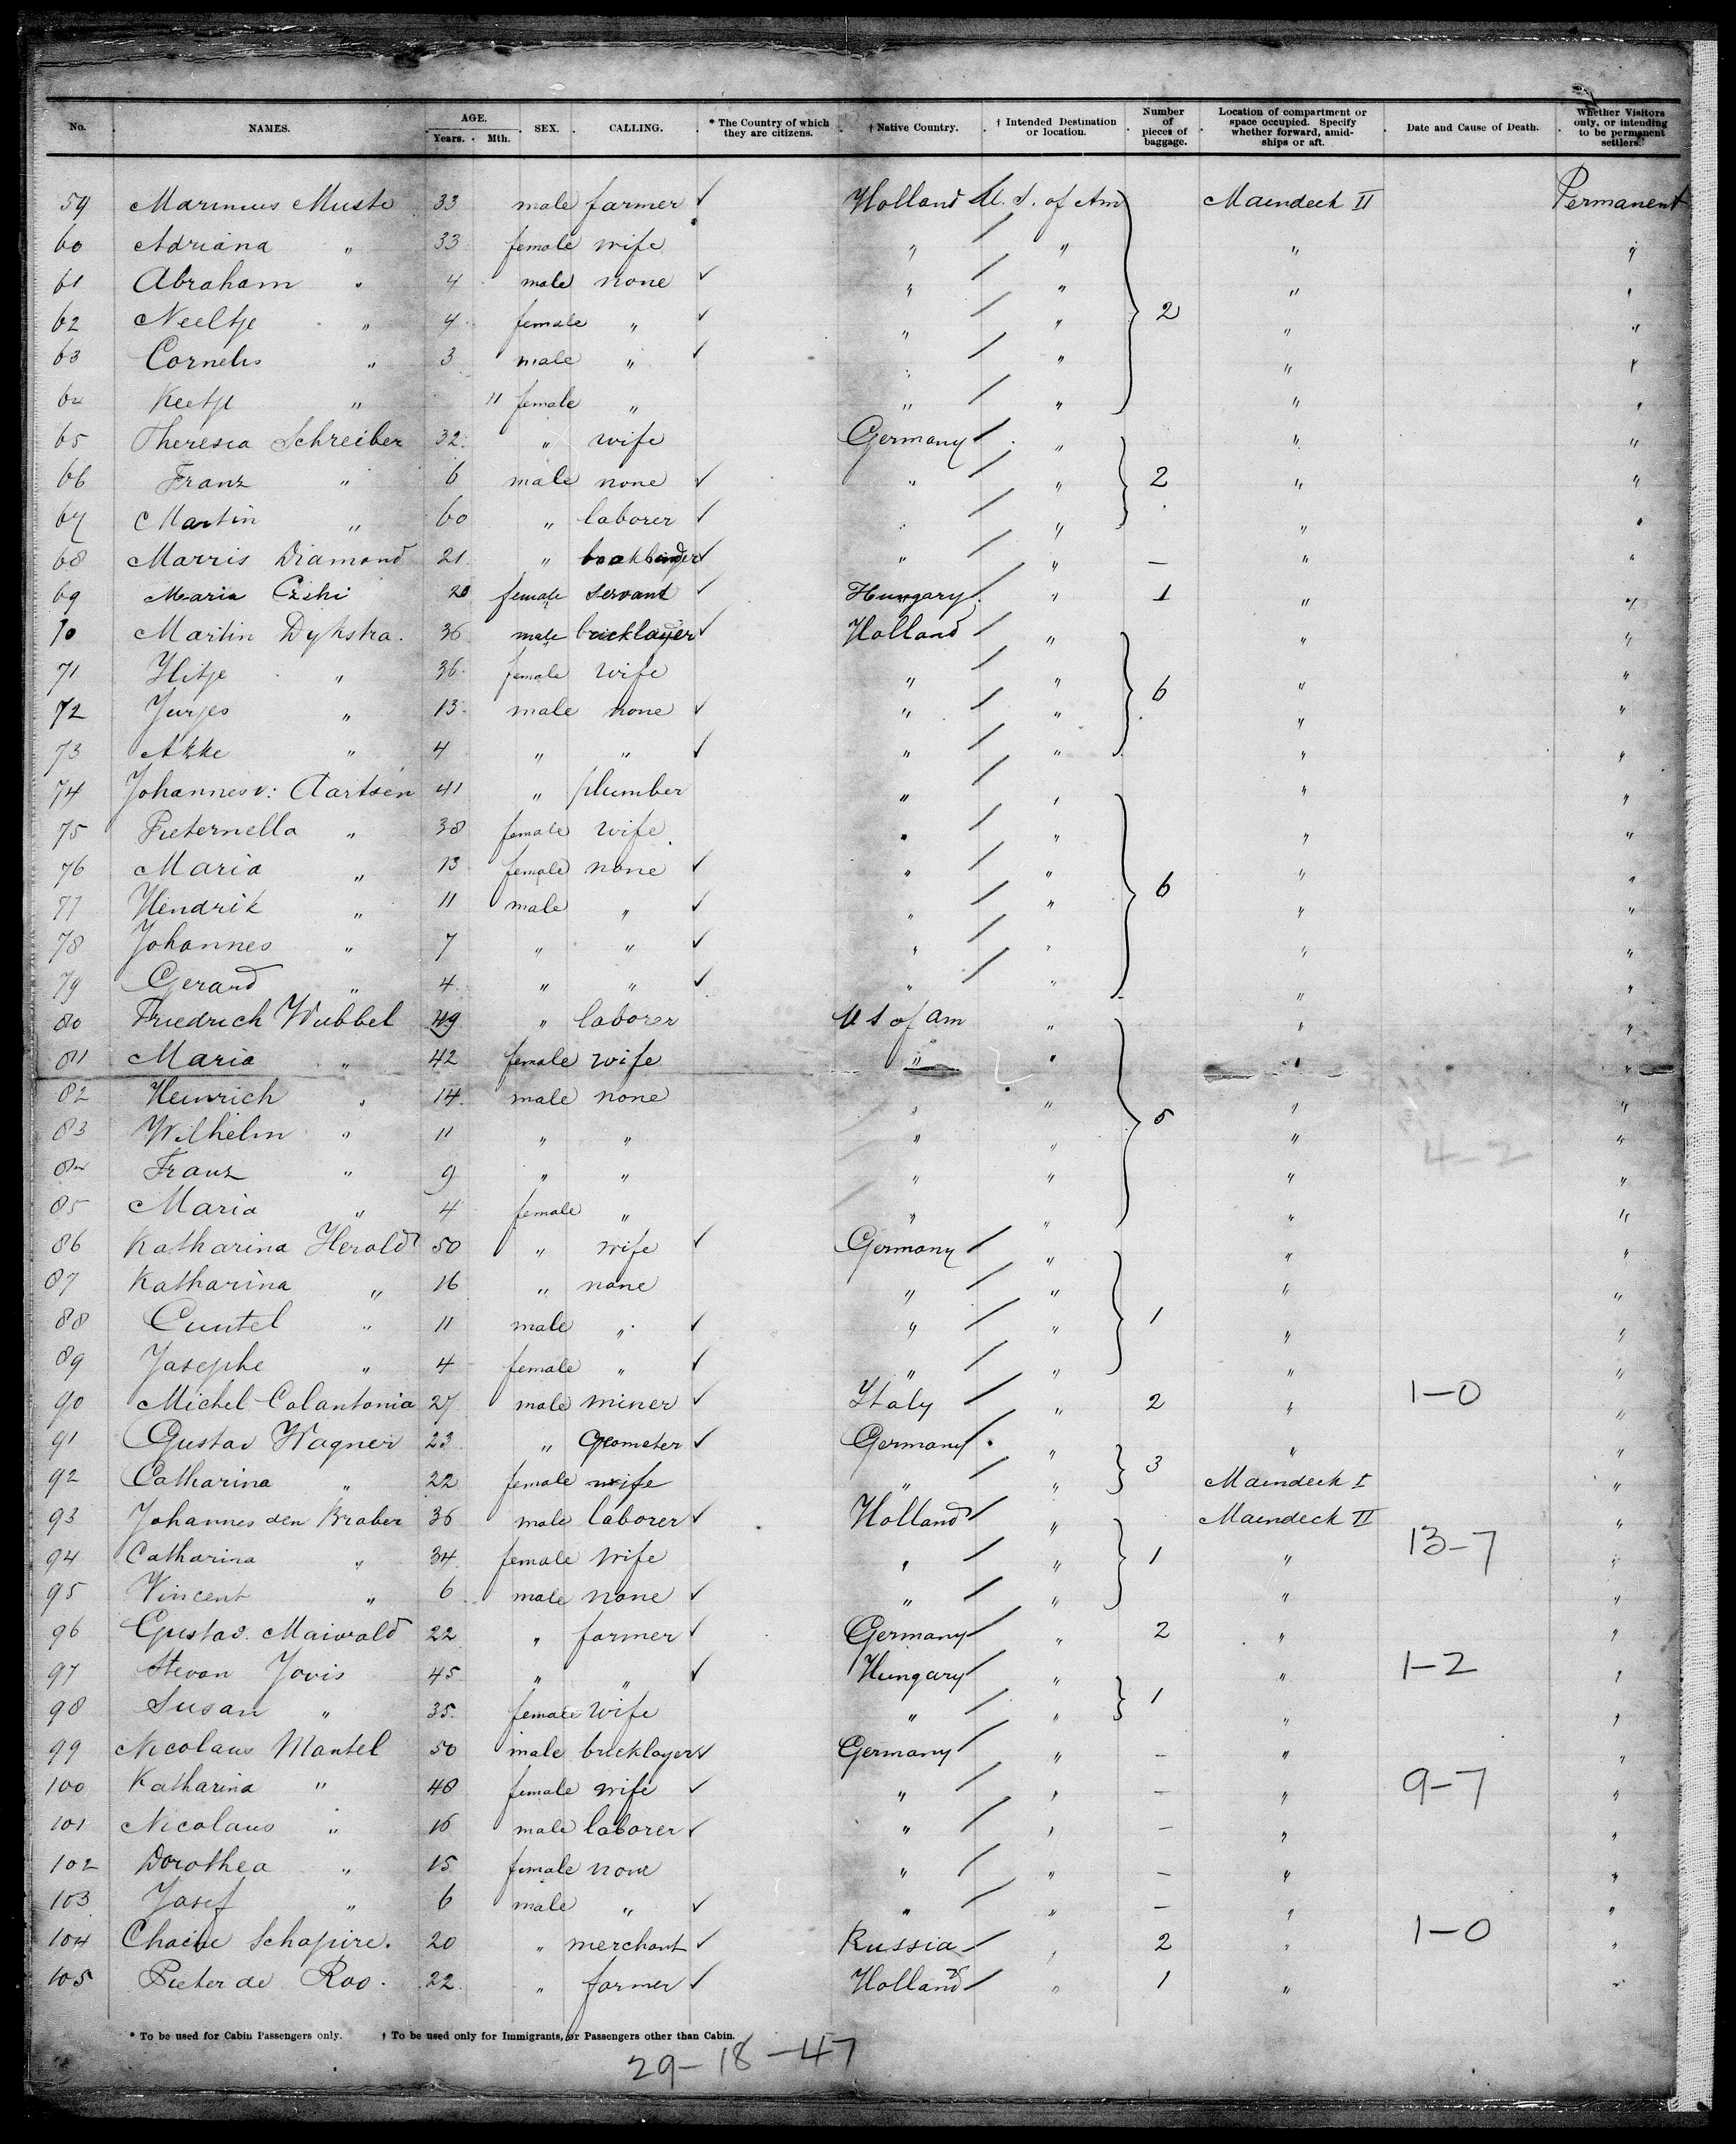 No. NAMES. AGE. Years. Mth. SEX. CALLING. * The Country of which they are citizens. † Native Country. † Intended Destination or location. Number of pieces of baggage. Location of compartment or space occupied. Specify whether forward, amidships or aft. Date and Cause of Death. Whether Visitors only, or intending to be permanent settlers.
59 Marinus Muste 33 male farmer ✓ Holland U. S. of Am Maindeck II Permanent
60 Adriana " 33 female wife " " " "
61 Abraham " 4 male none ✓ " " " "
62 Neeltje " 4 female " ✓ " " 2 " "
63 Cornelis " 3 male " ✓ " " " "
64 Keetje " 11 female " " " " "
65 Theresia Schreiber 32 " wife Germany " " "
66 Franz " 6 male none ✓ " " 2 " "
67 Martin " 60 " laborer ✓ " " " "
68 Marris Diamond 21 " bookbinder ✓ " " — " "
69 Maria 20 female servant ✓ Hungary " 1 " "
70 Martin Dykstra. 36 male bricklayer ✓ Holland " " "
71 Hitje " 36 female wife " " 6 " "
72 Jurjes " 13 male none ✓ " " " "
73 Akke " 4 " " ✓ " " " "
74 Johannes v: Aartsen 41 " plumber " " " "
75 Pieternella " 38 female wife " " " "
76 Maria " 13 female none ✓ " " " "
77 Hendrik " 11 male " ✓ " " 6 " "
78 Johannes " 7 " " ✓ " " " "
79 Gerard " 4 " " ✓ " " " "
80 Friedrich Wubbel 49 " laborer U S of Am " " "
81 Maria " 42 female wife " " " "
82 Heinrich " 14 male none " " " "
83 Wilhelm " 11 " " " " 5 " "
84 Franz " 9 " " " " " 4-2 "
85 Maria " 4 female " " " " "
86 Katharina Herold 50 " wife ✓ Germany " " "
87 Katharina " 16 " none " " " "
88 Cuntel " 11 male " ✓ " " 1 " "
89 Josephe " 4 female " ✓ " " " "
90 Michel Colantonia 27 male miner ✓ Italy " 2 " 1-0 "
91 Gustav Wagner 23 " Geometer ✓ Germany " 3 " "
92 Catharina " 22 female wife " " Maindeck I "
93 Johannes den Braber 36 male laborer ✓ Holland " Maindeck II "
94 Catharina " 34 female wife " " 1 " 13-7 "
95 Vincent " 6 male none ✓ " " " "
96 Gustav. Maiwald 22 " farmer ✓ Germany " 2 " "
97 Stevan Jovis 45 " " ✓ Hungary " " 1-2 "
98 Susan " 35 female wife " " 1 " "
99 Nicolaus Mantel 50 male bricklayer ✓ Germany " — " "
100 Katharina " 48 female wife ✓ " " — " 9-7 "
101 Nicolaus " 16 male laborer ✓ " " — " "
102 Dorothea " 15 female none " " — " "
103 Josef " 6 male " ✓ " " — " "
104 Schapire. 20 " merchant ✓ Russia " 2 " 1-0 "
105 Pieter de Roo. 22 " farmer ✓ Holland " 1 " "
* To be used for Cabin Passengers only. † To be used only for Immigrants, or Passengers other than Cabin.
29-18-47